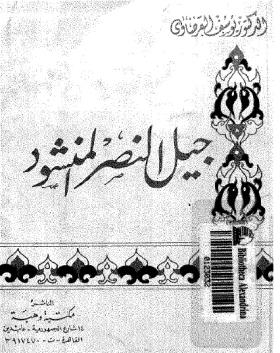 الدكتور يوسف القرضاوى
جيل النصر المنشود
Bibliotheca Alexandrina
الناشر
مكتبة وهبة
١٤ شارع الجمهورية - عابدين
القاهرة - ت ٣٩١٧٤٧٠